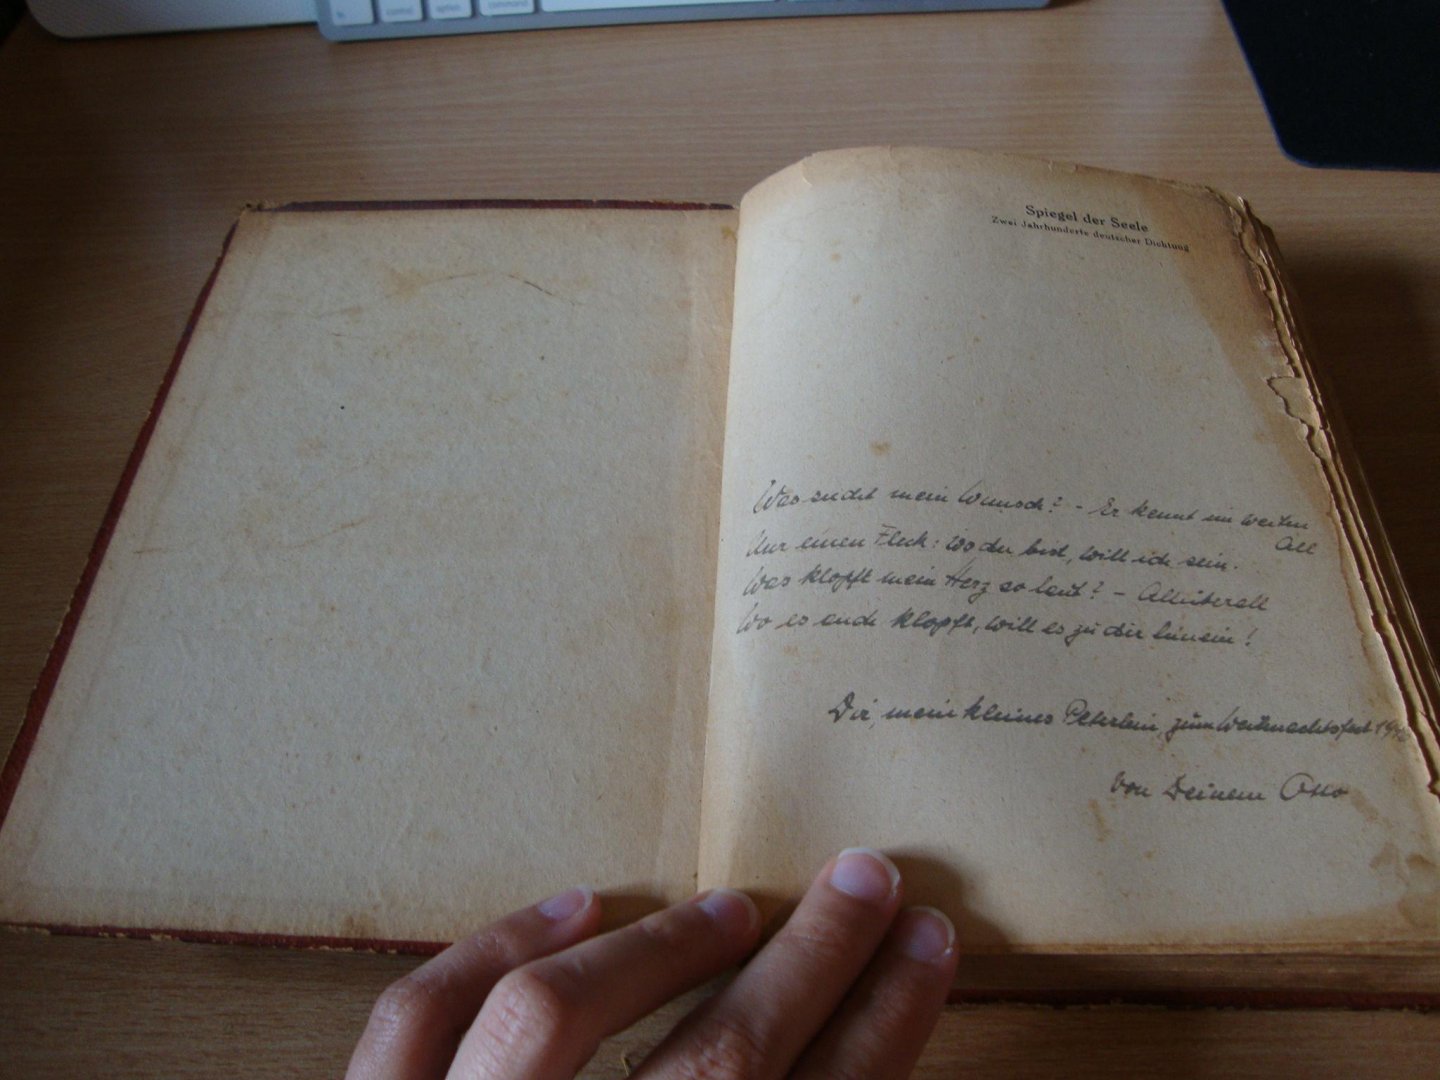 control
option
command
Spiegel der Seele
Zwei Jahrhunderte deutscher Dichtung
Was sucht mein Wunsch? - Er kennt im weiten
All
Nur einen Fleck: Wo du bist, will ich sein.
Was klopft mein Herz so laut? - Allüberall
Wo es auch klopft, will es zu dir hinein!
Dir, mein kleines Peterlein, zum Weihnachtsfest
von Deinem Otto